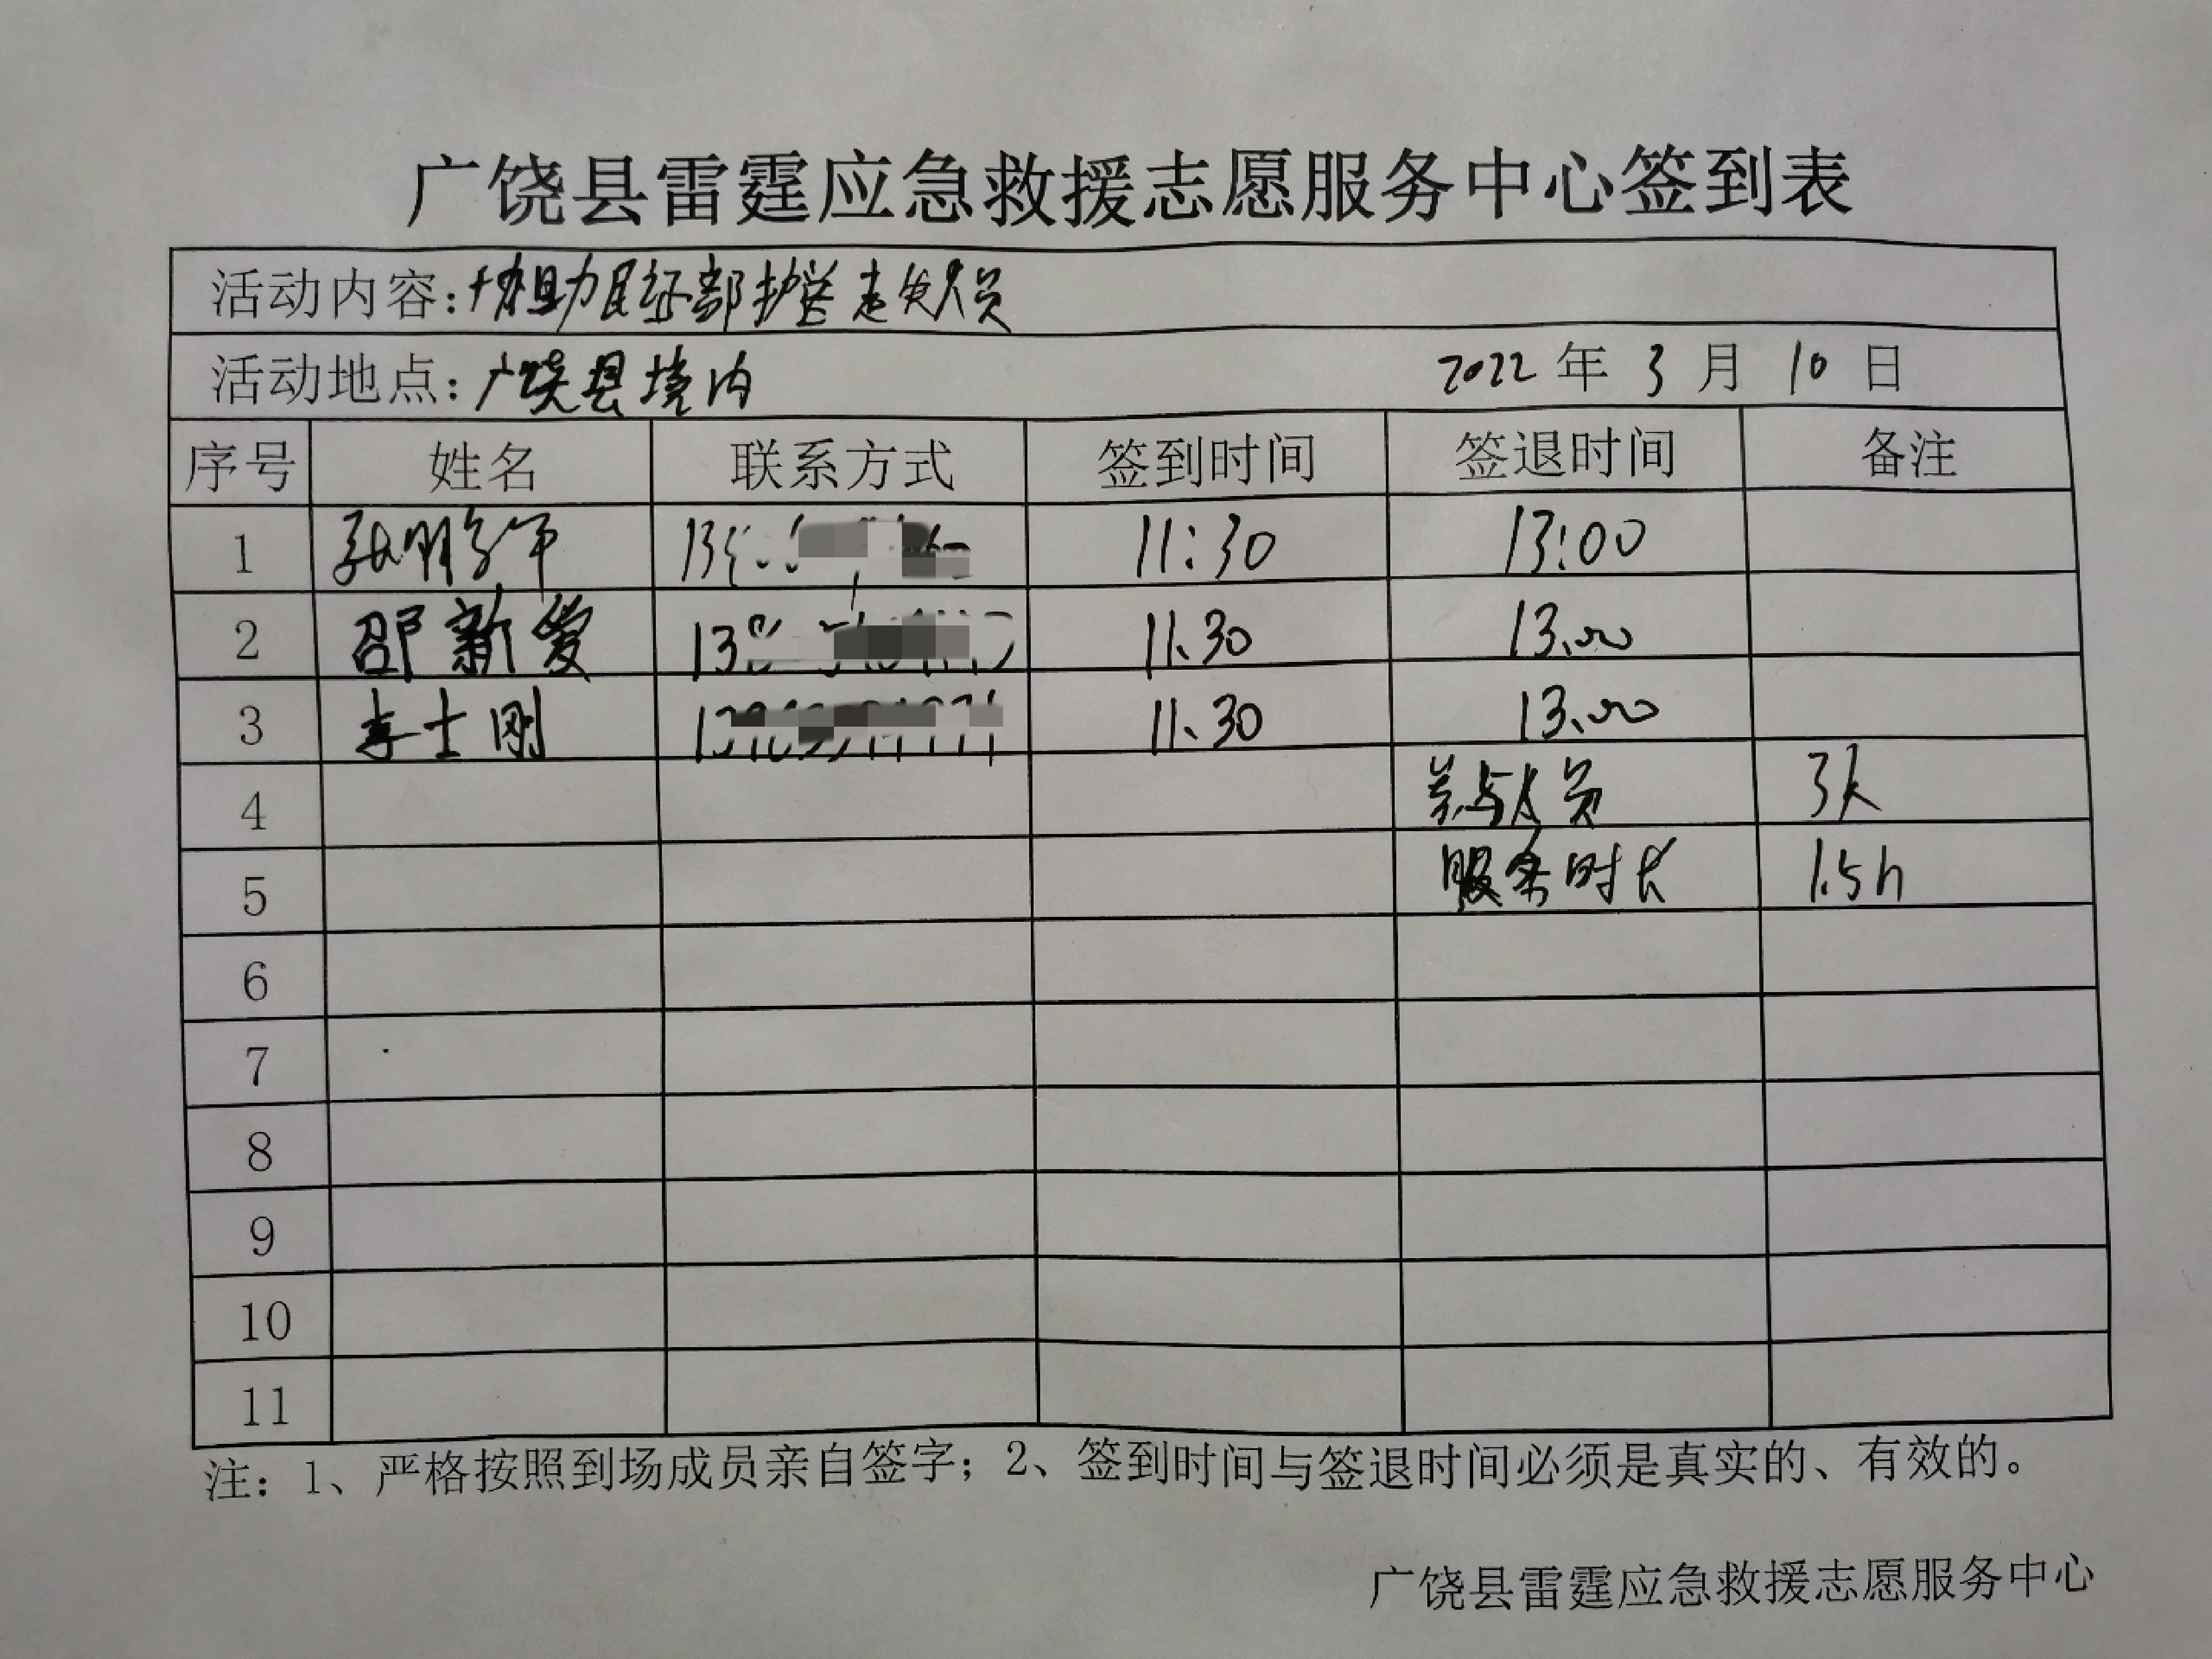 广饶县雷霆应急救援志愿服务中心签到表
活动内容：协助民政部护送走失人员
活动地点：广饶县境内 2022 年 3 月 10 日
序号 姓名 联系方式 签到时间 签退时间 备注
1 11:30 13:00
2 邵新爱 11.30 13.00
3 李士刚 11.30 13.00
4 参与人员 3人
5 服务时长 1.5h
6
7
8
9
10
11
注：1、严格按照到场成员亲自签字；2、签到时间与签退时间必须是真实的、有效的。
广饶县雷霆应急救援志愿服务中心